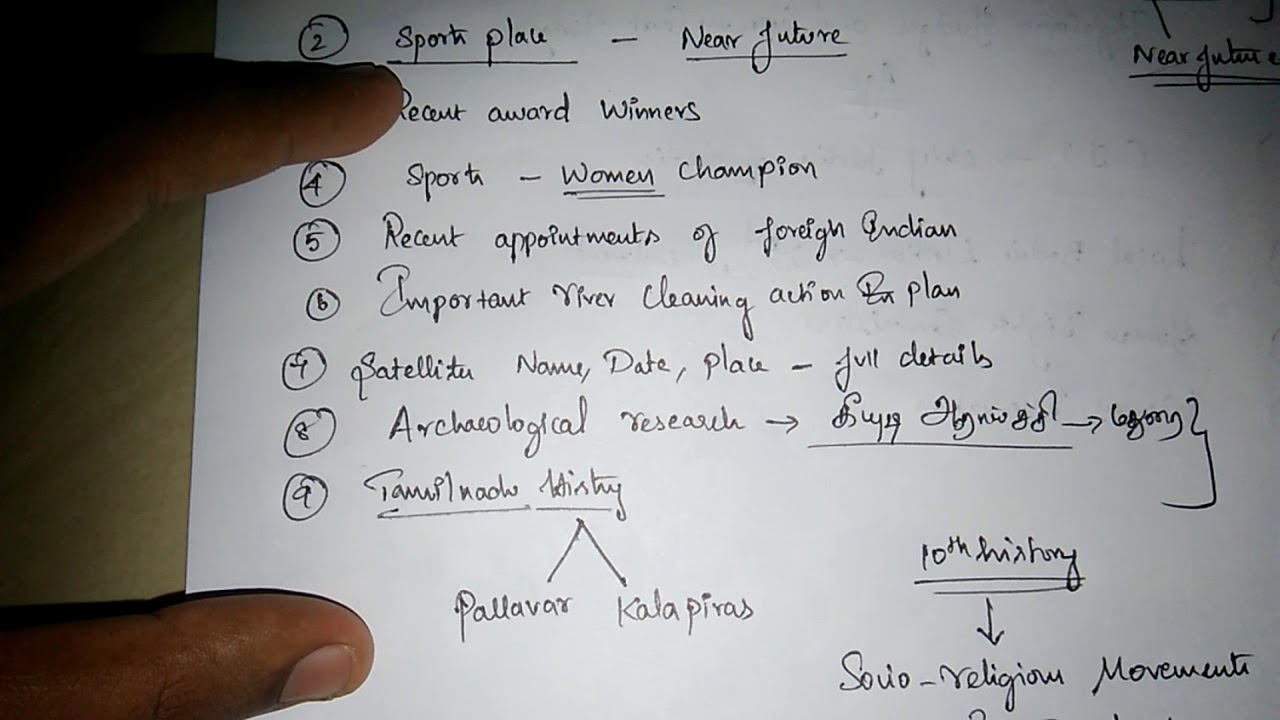 ② Sports place – Near future
Near future
Recent award Winners
④ Sports – Women Champion
⑤ Recent appointments of foreign Indian
⑥ Important river cleaning action plan
⑦ Satellite Name, Date, place – full details
⑧ Archaeological research → கீழடி ஆராய்ச்சி → மதுரை
⑨ Tamilnadu History
Pallavar Kalapiras
10th history
↓
Socio-religious Movements